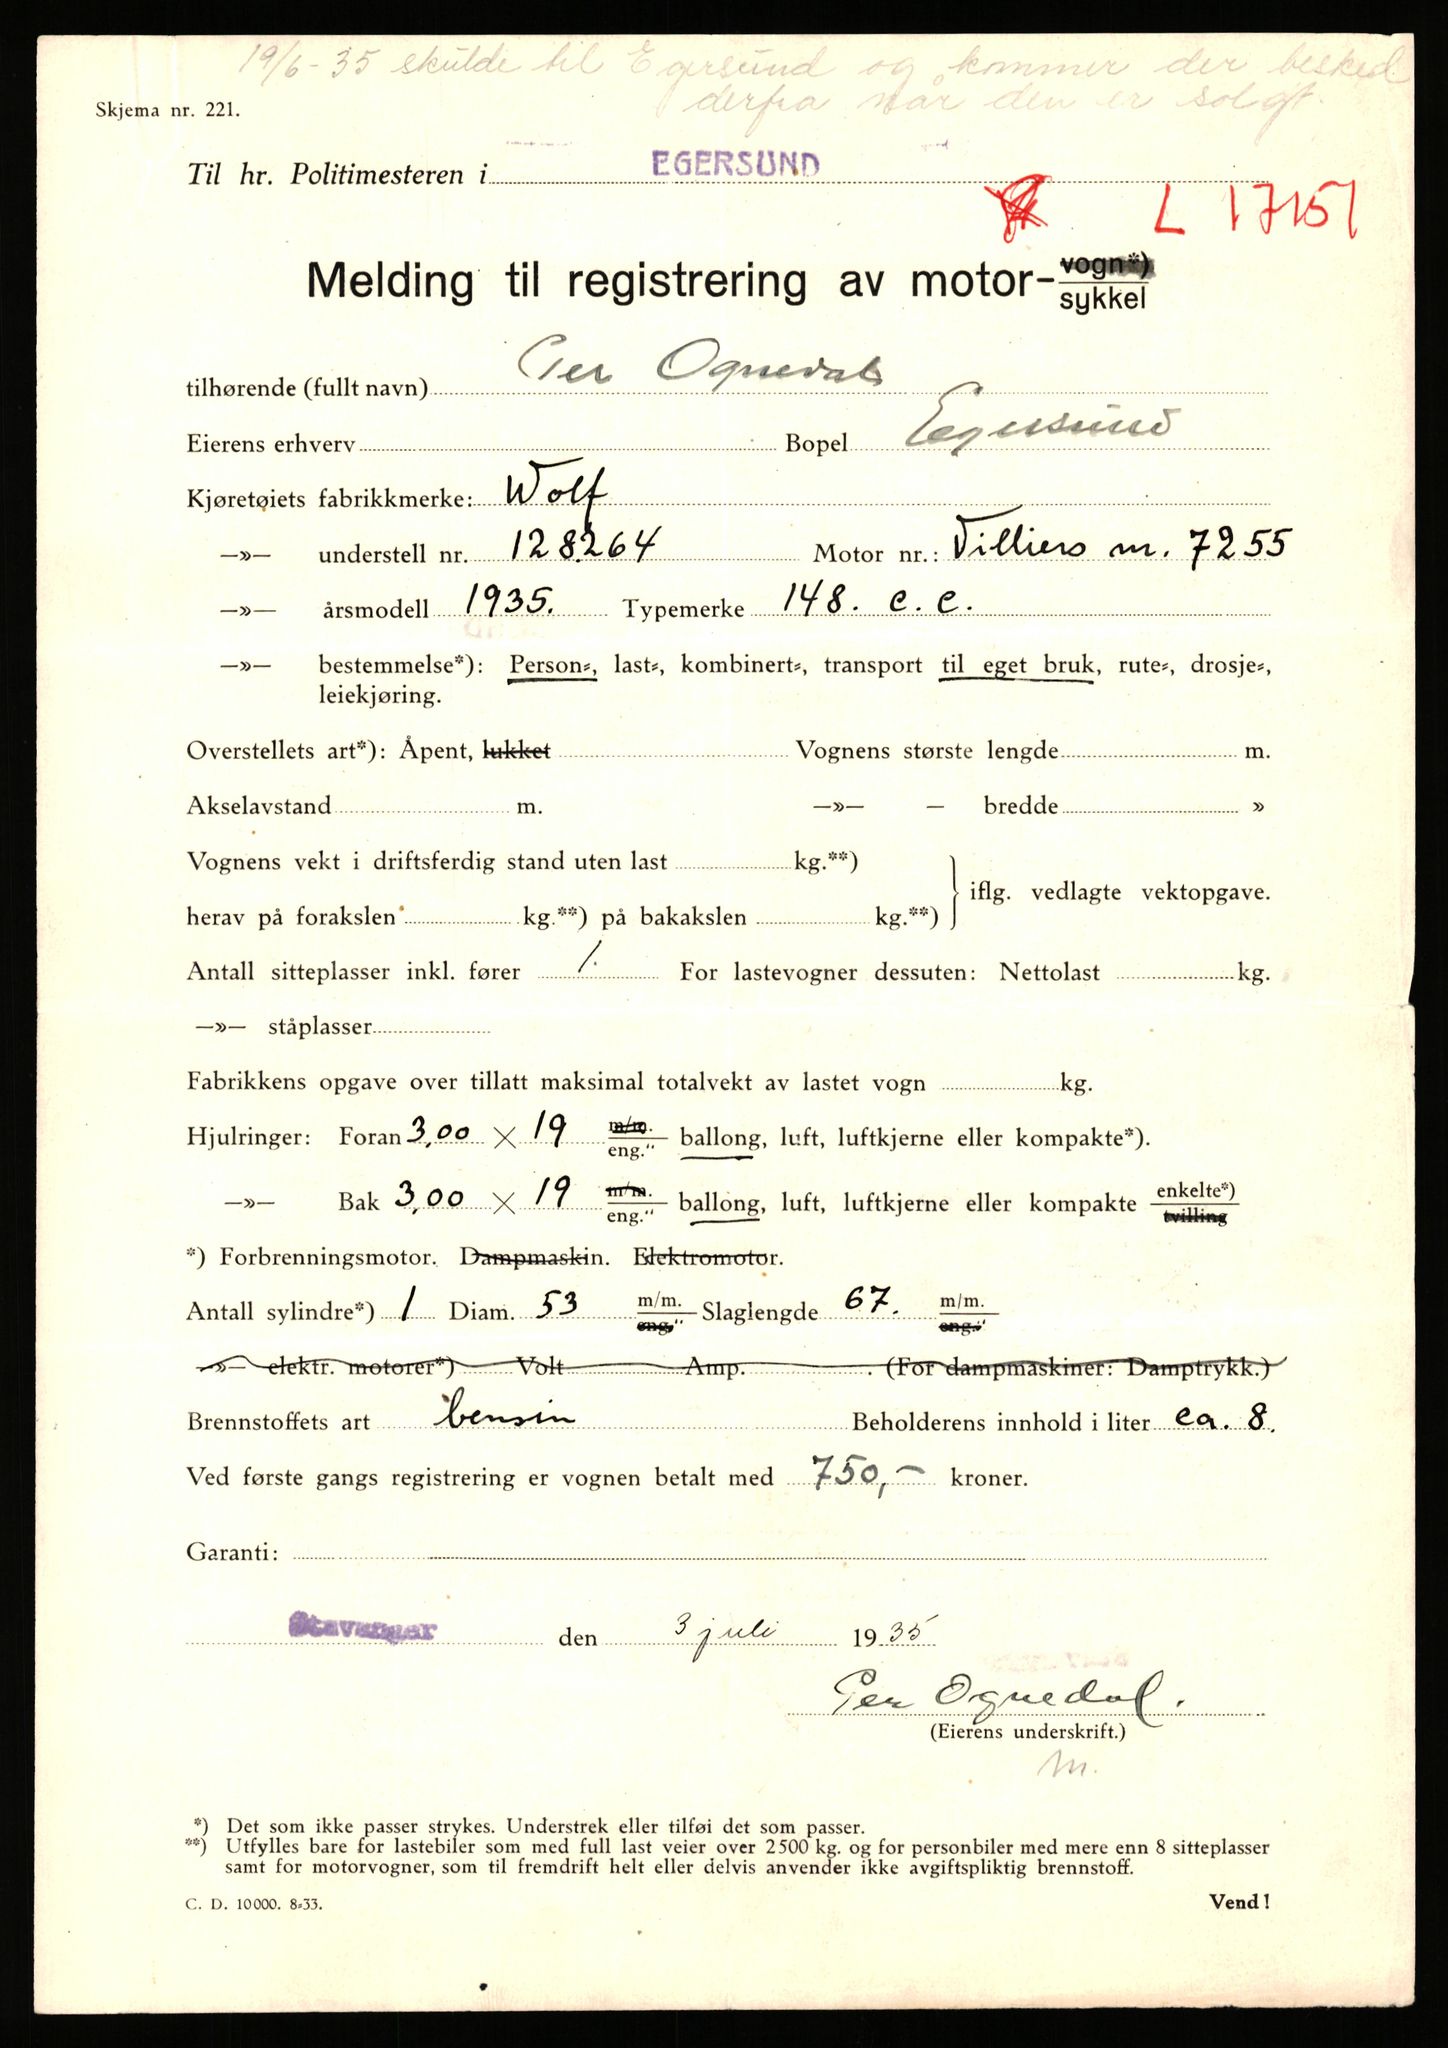 19/6-35 skulde til Egersund og kommer der besked
derfra når den er solgt.
Skjema nr. 221.
Til hr. Politimesteren i EGERSUND
L 17151
Melding til registrering av motor- vogn*)
sykkel
tilhørende (fullt navn) Per Ognedal
Eierens erhverv Bopel Egersund
Kjøretøiets fabrikkmerke: Wolf
—»— understell nr. 128264 Motor nr.: Villiers nr. 7255
—»— årsmodell 1935. Typemerke 148. c. c.
—»— bestemmelse*): Person-, last-, kombinert-, transport til eget bruk, rute-, drosje-,
leiekjøring.
Overstellets art*): Åpent, lukket Vognens største lengde m.
Akselavstand m. —»— — bredde »
Vognens vekt i driftsferdig stand uten last kg.**)
iflg. vedlagte vektopgave.
herav på forakslen kg.**) på bakakslen kg.**)
Antall sitteplasser inkl. fører 1. For lastevogner dessuten: Nettolast kg.
—»— ståplasser
Fabrikkens opgave over tillatt maksimal totalvekt av lastet vogn kg.
Hjulringer: Foran 3,00 × 19 m/m. eng." ballong, luft, luftkjerne eller kompakte*).
—»— Bak 3,00 × 19 m/m. eng." ballong, luft, luftkjerne eller kompakte enkelte*) tvilling
*) Forbrenningsmotor. Dampmaskin. Elektromotor.
Antall sylindre*) 1 Diam. 53 m/m. eng." Slaglengde 67. m/m. eng."
—»— elektr. motorer*) Volt Amp. . (For dampmaskiner: Damptrykk.)
Brennstoffets art bensin Beholderens innhold i liter ca. 8.
Ved første gangs registrering er vognen betalt med 750,- kroner.
Garanti:
Stavanger den 3 juli 1935
Per Ognedal.
(Eierens underskrift.)
m.
*) Det som ikke passer strykes. Understrek eller tilføi det som passer.
**) Utfylles bare for lastebiler som med full last veier over 2500 kg. og for personbiler med mere enn 8 sitteplasser
samt for motorvogner, som til fremdrift helt eller delvis anvender ikke avgiftspliktig brennstoff.
C. D. 10000. 8-33. Vend!